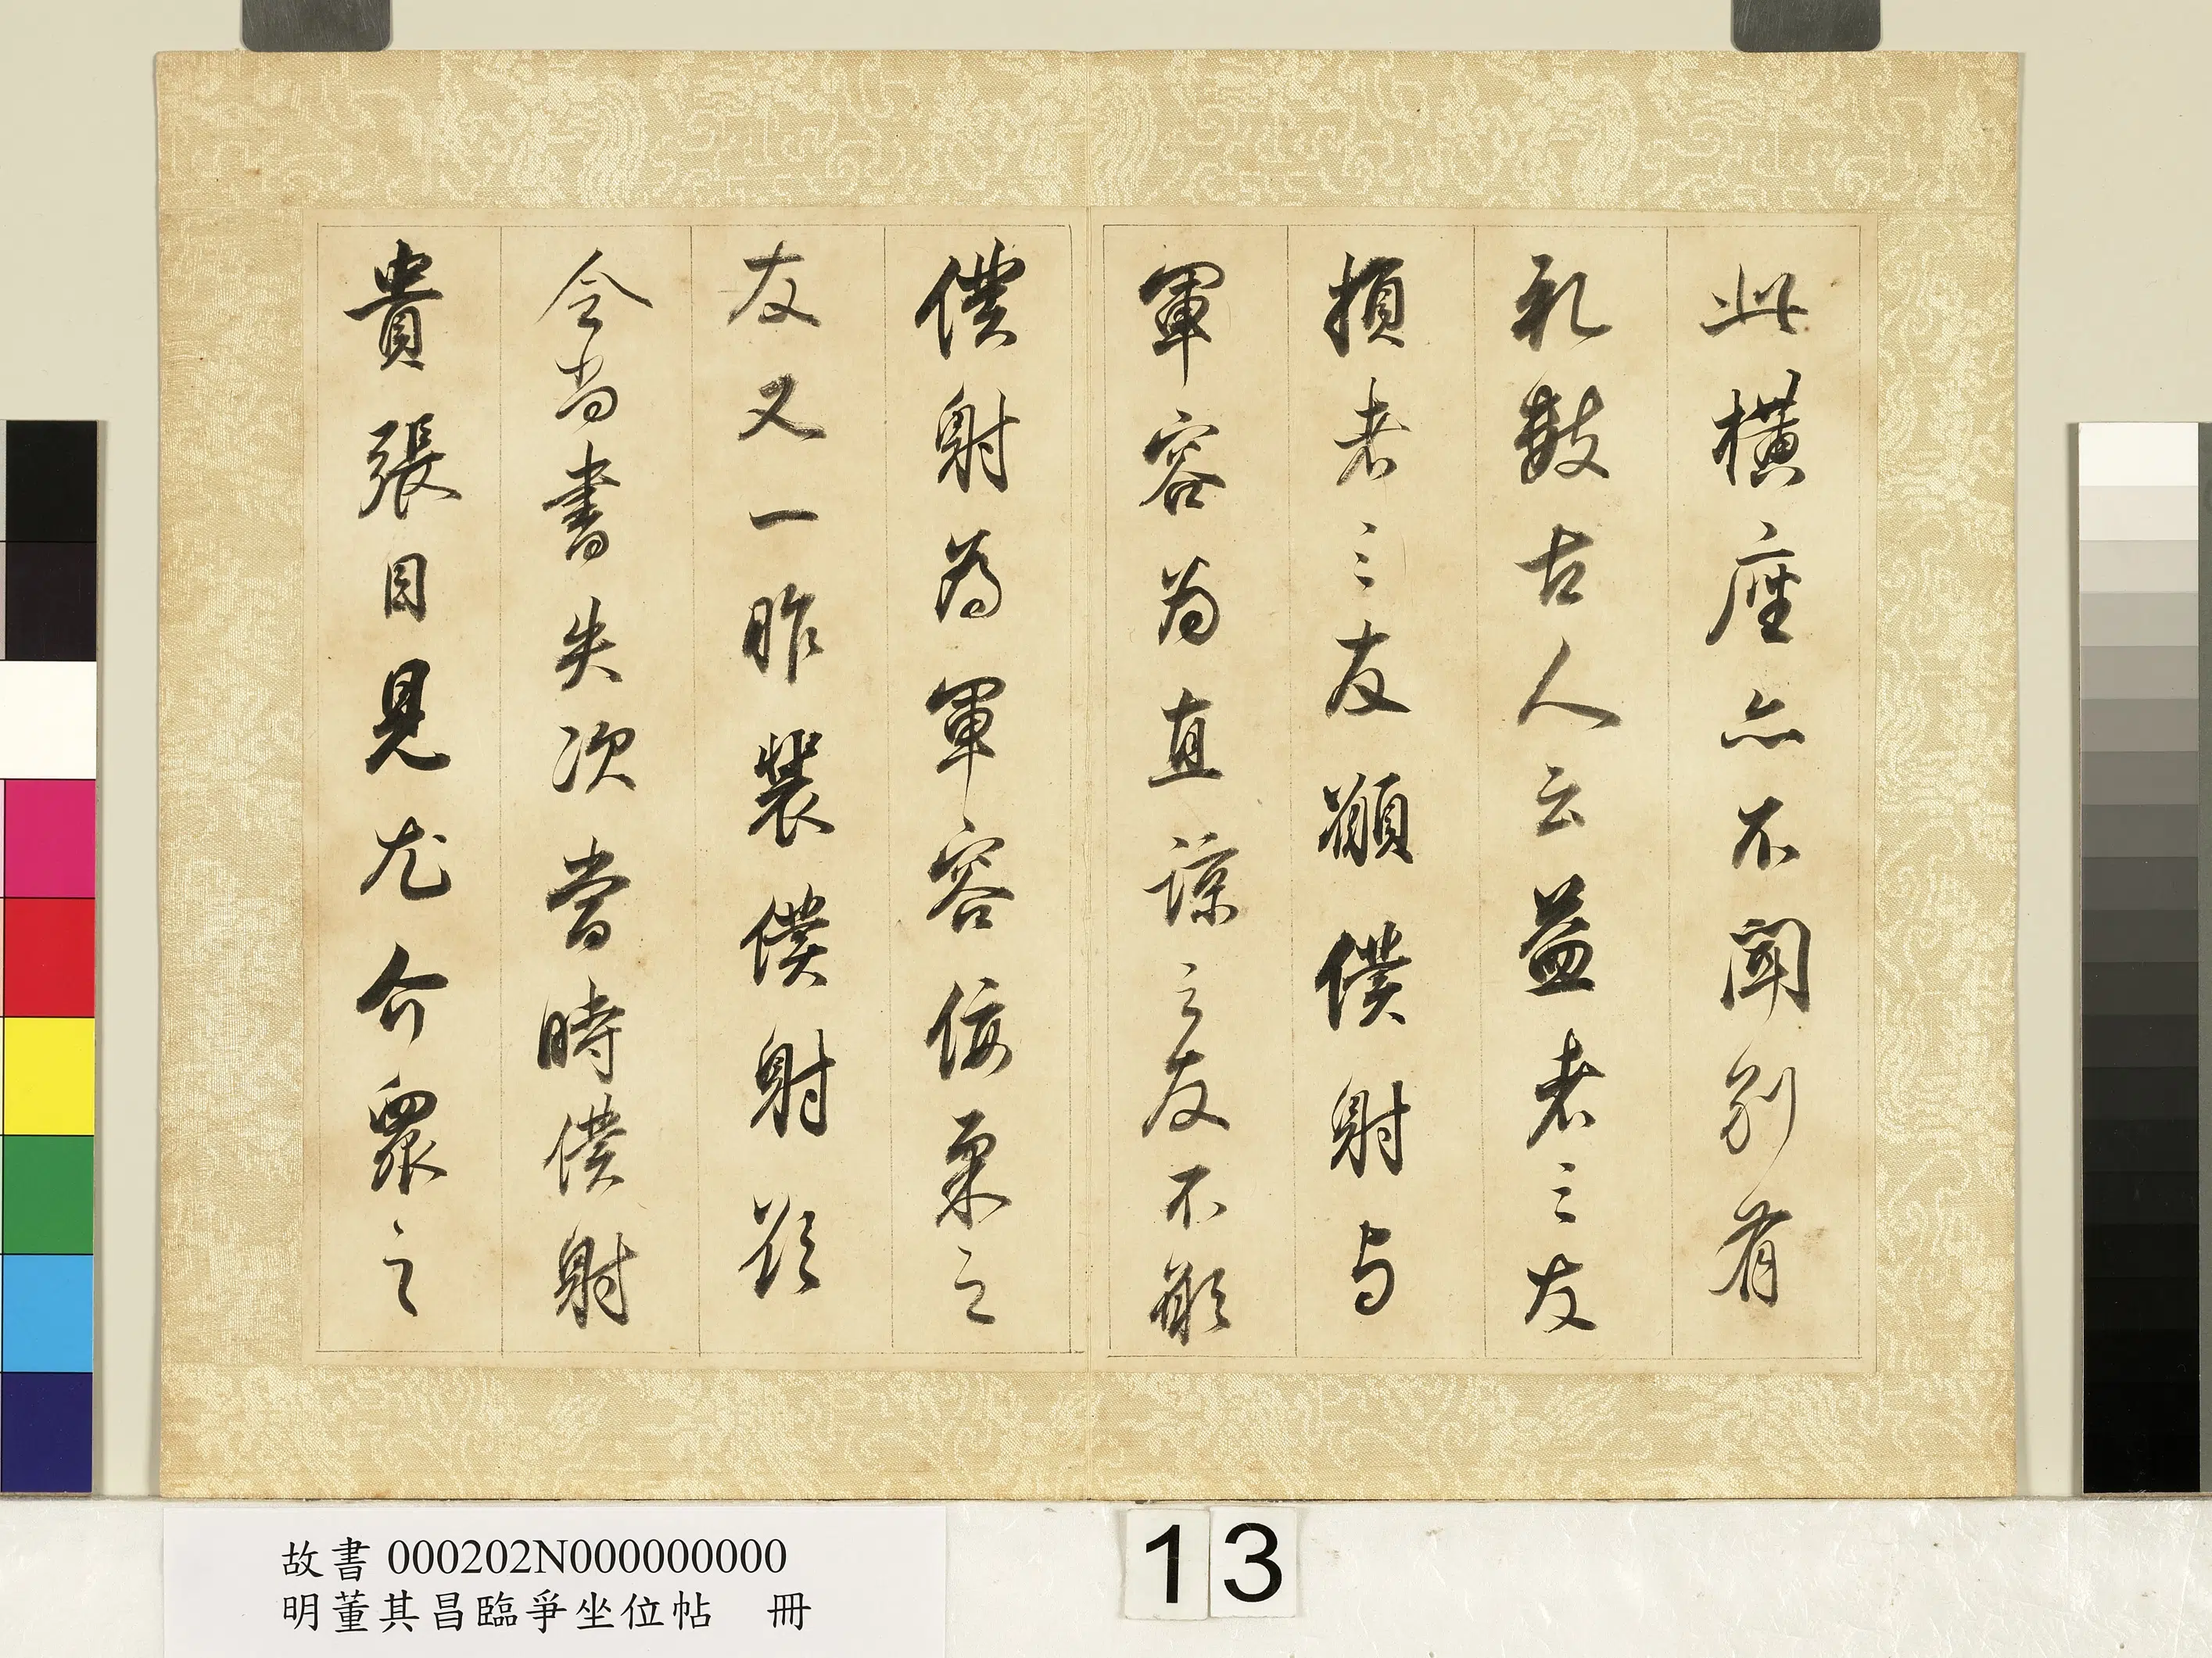 此橫座亦不聞別有
礼數古人云益者三友
損者三友願僕射与
軍容為直諒之友不願
僕射為軍容佞柔之
友又一昨裴僕射誤
令尚書失次當時僕射
貴張目見尤介眾之
故書000202N000000000
明董其昌臨爭坐位帖 冊
13